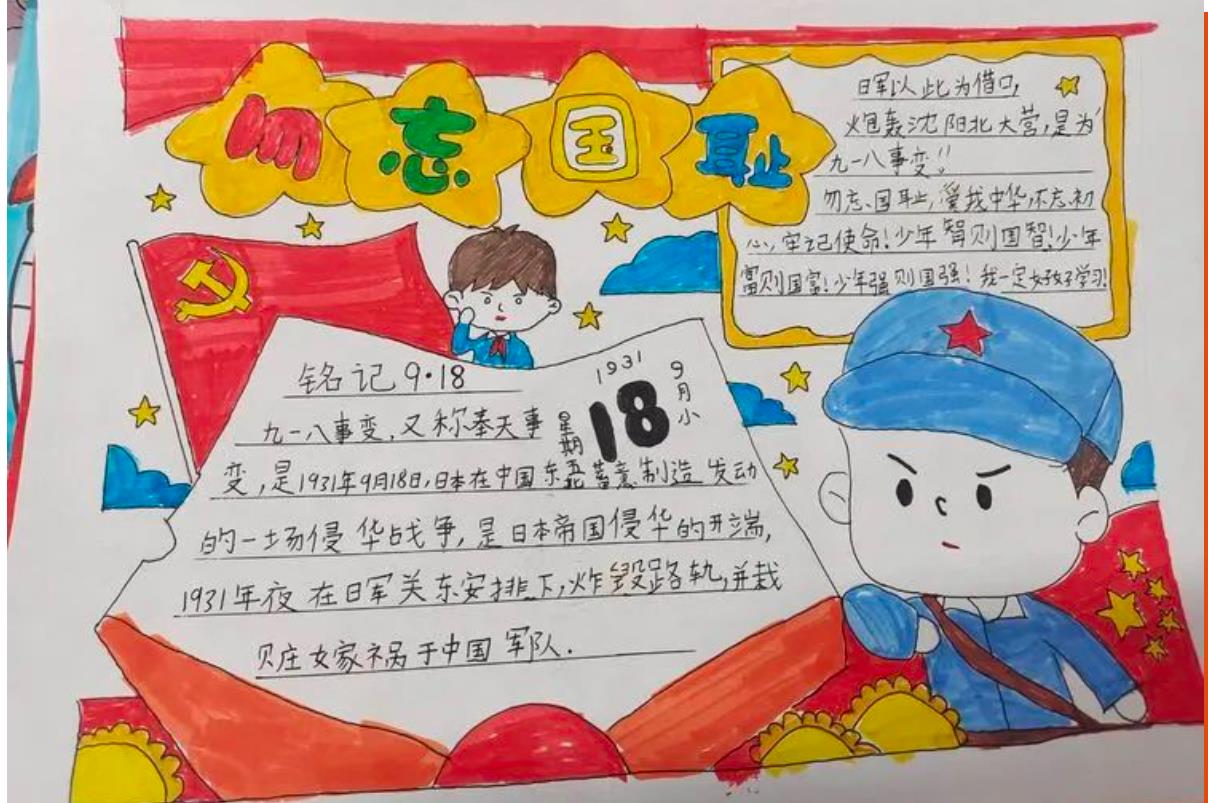 勿志国耻
日军以此为借口,
炮轰沈阳北大营,是为
九一八事变!!
勿忘国耻,爱我中华,不忘初
心,牢记使命!少年智则国智!少年
富则国富!少年强则国强!我一定好好学习!
铭记9·18
1931
9月小
18
星期
九一八事变,又称奉天事
变,是1931年9月18日,日本在中国东北蓄意制造发动
的一场侵华战争,是日本帝国侵华的开端,
1931年夜在日军关东安排下,炸毁路轨,并栽
赃嫁祸于中国军队.